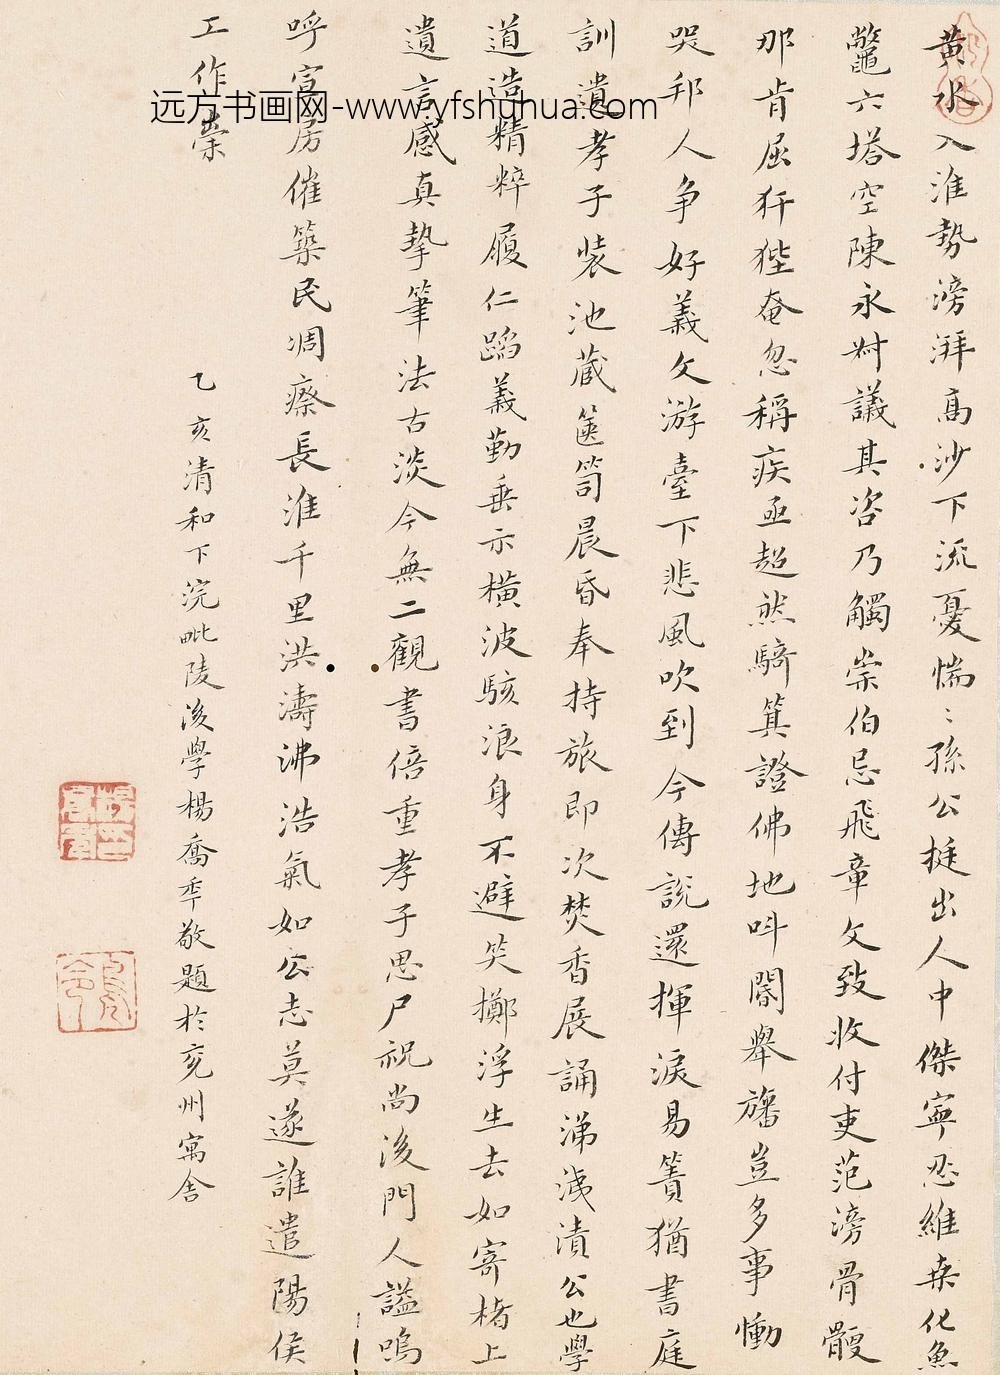 黄水入淮勢滂湃高沙下流憂惴〻孫公挺出人中傑寧忍維桑化魚
鼈六塔空陳永叔議其咨乃觸崇伯忌飛章文致收付吏范滂骨鯁
那肯屈犴狴奄忽稱疾亟超然騎箕證佛地叫閽舉旛豈多事慟
哭邦人争好義文游臺下悲風吹到今傳說還揮淚易簀猶書庭
訓遺孝子装池藏篋笥晨昏奉持旅即次焚香展誦涕洟漬公也學
道造精粹履仁蹈義勤垂示橫波駭浪身不避笑擲浮生去如寄楮上
遺言感真摯筆法古淡今無二觀書倍重孝子思尸祝尚後門人謚嗚
呼宣房催築民凋瘵長淮千里洪濤沸浩氣如公志莫遂誰遣陽侯
工作祟
乙亥清和下浣毗陵後學楊喬年敬題於兖州寓舍
远方书画网-www.yfshuhua.com